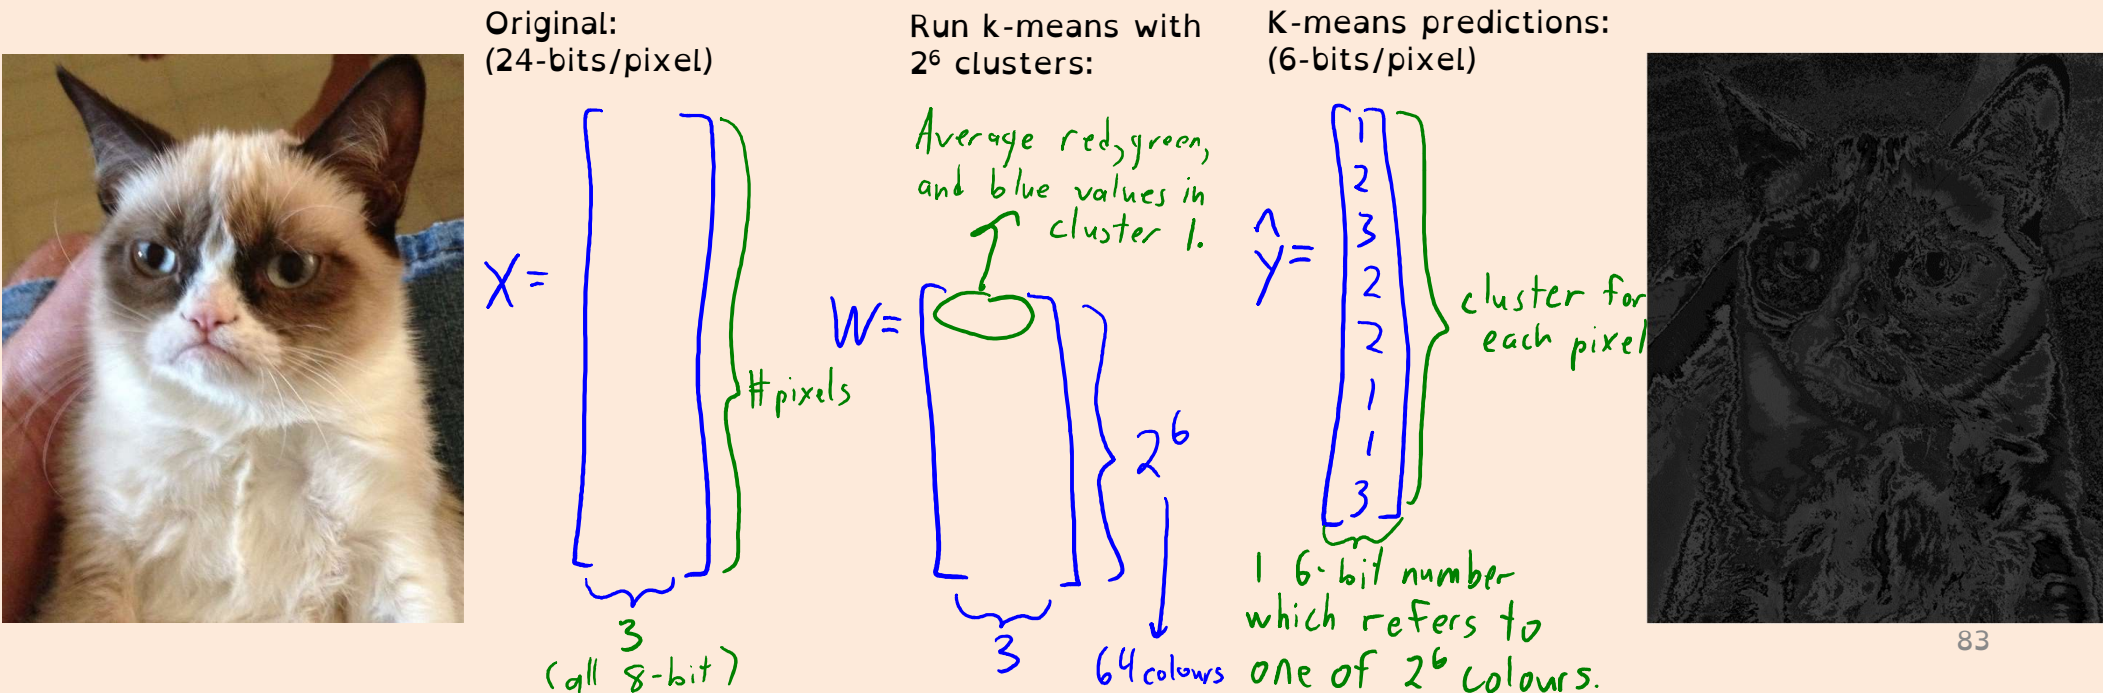 Original:
(24-bits/pixel)
X =
# pixels
3
(all 8-bit)
Run k-means with
2⁶ clusters:
Average red, green,
and blue values in
cluster 1.
W =
2⁶
3
64 colours
K-means predictions:
(6-bits/pixel)
ŷ =
1
2
3
2
2
1
1
3
cluster for
each pixel
1 6-bit number
which refers to
one of 2⁶ colours.
83